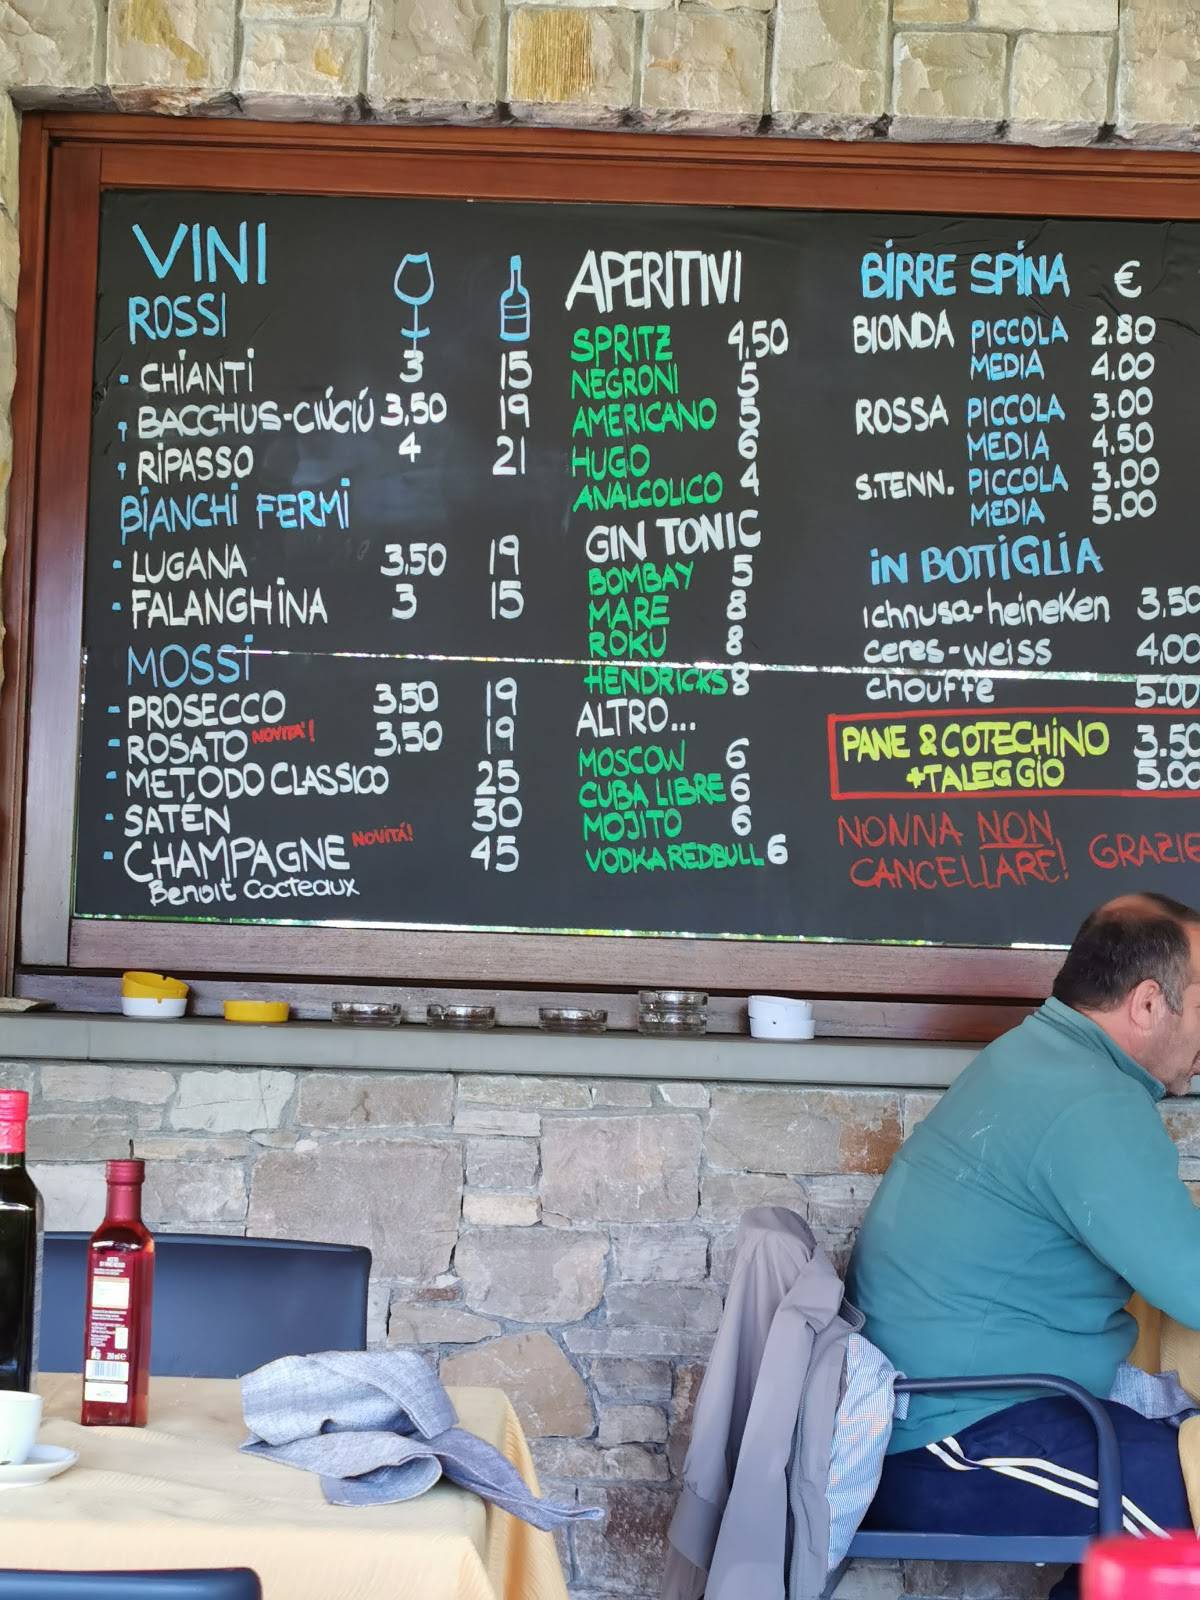 VINI
ROSSI
CHIANTI 3 15
BACCHUS-CIÚCIÚ 3,50 19
RIPASSO 4 21
BIANCHI FERMI
LUGANA 3,50 19
FALANGHINA 3 15
MOSSI
PROSECCO 3,50 19
ROSATO NOVITA'! 3,50 19
METODO CLASSICO 25
SATÉN 30
CHAMPAGNE NOVITÁ! 45
Benoit Cocteaux
APERITIVI
SPRITZ 4,50
NEGRONI 5
AMERICANO 5
HUGO 6
ANALCOLICO 4
GIN TONIC
BOMBAY 5
MARE 8
ROKU 8
HENDRICKS 8
ALTRO...
MOSCOW 6
CUBA LIBRE 6
MOJITO 6
VODKA REDBULL 6
BIRRE SPINA €
BIONDA PICCOLA 2.80
MEDIA 4.00
ROSSA PICCOLA 3.00
MEDIA 4.50
S.TENN. PICCOLA 3.00
MEDIA 5.00
IN BOTTIGLIA
ichnusa-heineken 3,50
ceres-weiss 4,00
chouffe 5.00
PANE & COTECHINO 3.50
+TALEGGIO 5.00
NONNA NON
CANCELLARE! GRAZIE